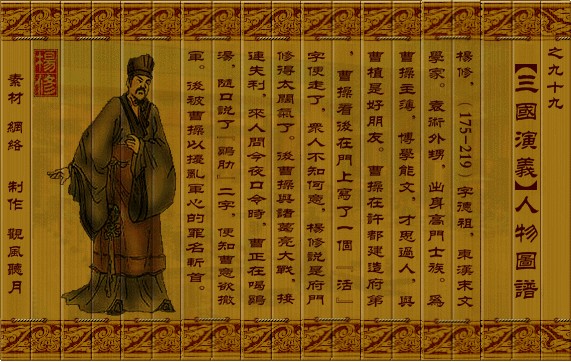 之九十九
【三國演義】人物圖譜
楊修，（175-219）字德祖，東漢末文
學家。袁術外甥，出身高門士族。為
曹操主薄，博學能文，才思過人，與
曹植是好朋友。曹操在許都建造府第
，曹操看後在門上寫了一個『活』
字便走了，衆人不知何意，楊修說是府門
修得太闊氣了。後曹操與諸葛亮大戰，接
連失利，來人問今夜口令時，曹正在喝鷄
湯，隨口說了『鷄肋』二字，便知曹意欲撤
軍。後被曹操以擾亂軍心的罪名斬首。
楊修
素材 網絡 制作 觀風聽月